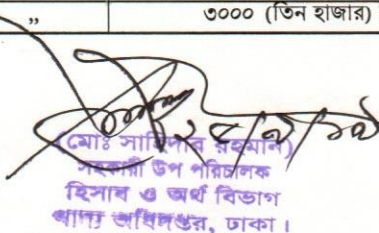 ” ৩০০০ (তিন হাজার)
(মোঃ রহমান)
সহকারী উপ পরিচালক
হিসাব ও অর্থ বিভাগ
খাদ্য অধিদপ্তর, ঢাকা।